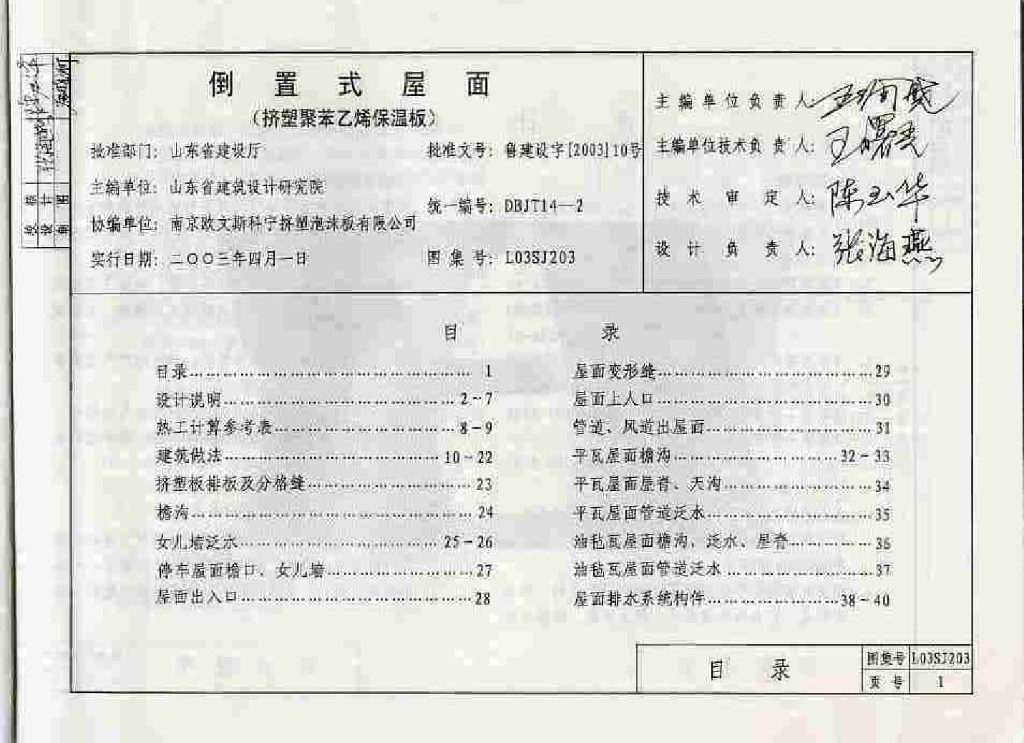 倒置式屋面
（挤塑聚苯乙烯保温板）
批准部门：山东省建设厅
批准文号：鲁建设字[2003]10号
主编单位：山东省建筑设计研究院
统一编号：DBJT14—2
协编单位：南京欧文斯科宁挤塑泡沫板有限公司
实行日期：二〇〇三年四月一日
图集号：L03SJ203
主编单位负责人
主编单位技术负责人：王曙光
技术审定人：陈玉华
设计负责人：张海燕
目录
目录……………………………………………… 1
设计说明………………………………………2-7
热工计算参考表………………………………8-9
建筑做法……………………………………10-22
挤塑板排板及分格缝……………………………23
檐沟………………………………………………24
女儿墙泛水…………………………………25-26
停车屋面檐口、女儿墙…………………………27
屋面出入口………………………………………28
屋面变形缝………………………………………29
屋面上人口………………………………………30
管道、风道出屋面………………………………31
平瓦屋面檐沟………………………………32-33
平瓦屋面屋脊、天沟……………………………34
平瓦屋面管道泛水………………………………35
油毡瓦屋面檐沟、泛水、屋脊…………………36
油毡瓦屋面管道泛水……………………………37
屋面排水系统构件…………………………38-40
目录
图集号 L03SJ203
页号 1